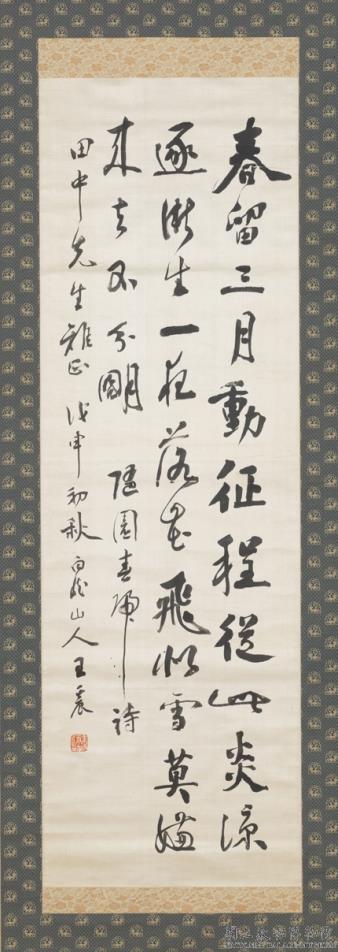 春留三月動征程從此炎涼
逐漸生一夜落花飛似雪莫嫌
來去不分明 隨園春歸詩
田中先生雅正 戊申初秋 白龍山人王震